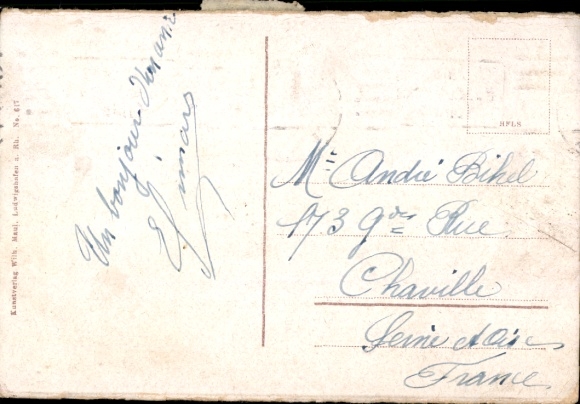 Un bonjour
Kunstverlag Wilh. Maul, Ludwigshafen a. Rh. No. 617
RFLS
Mr André Bihel
173 Gde Rue
Chaville
Seine et Oise
France